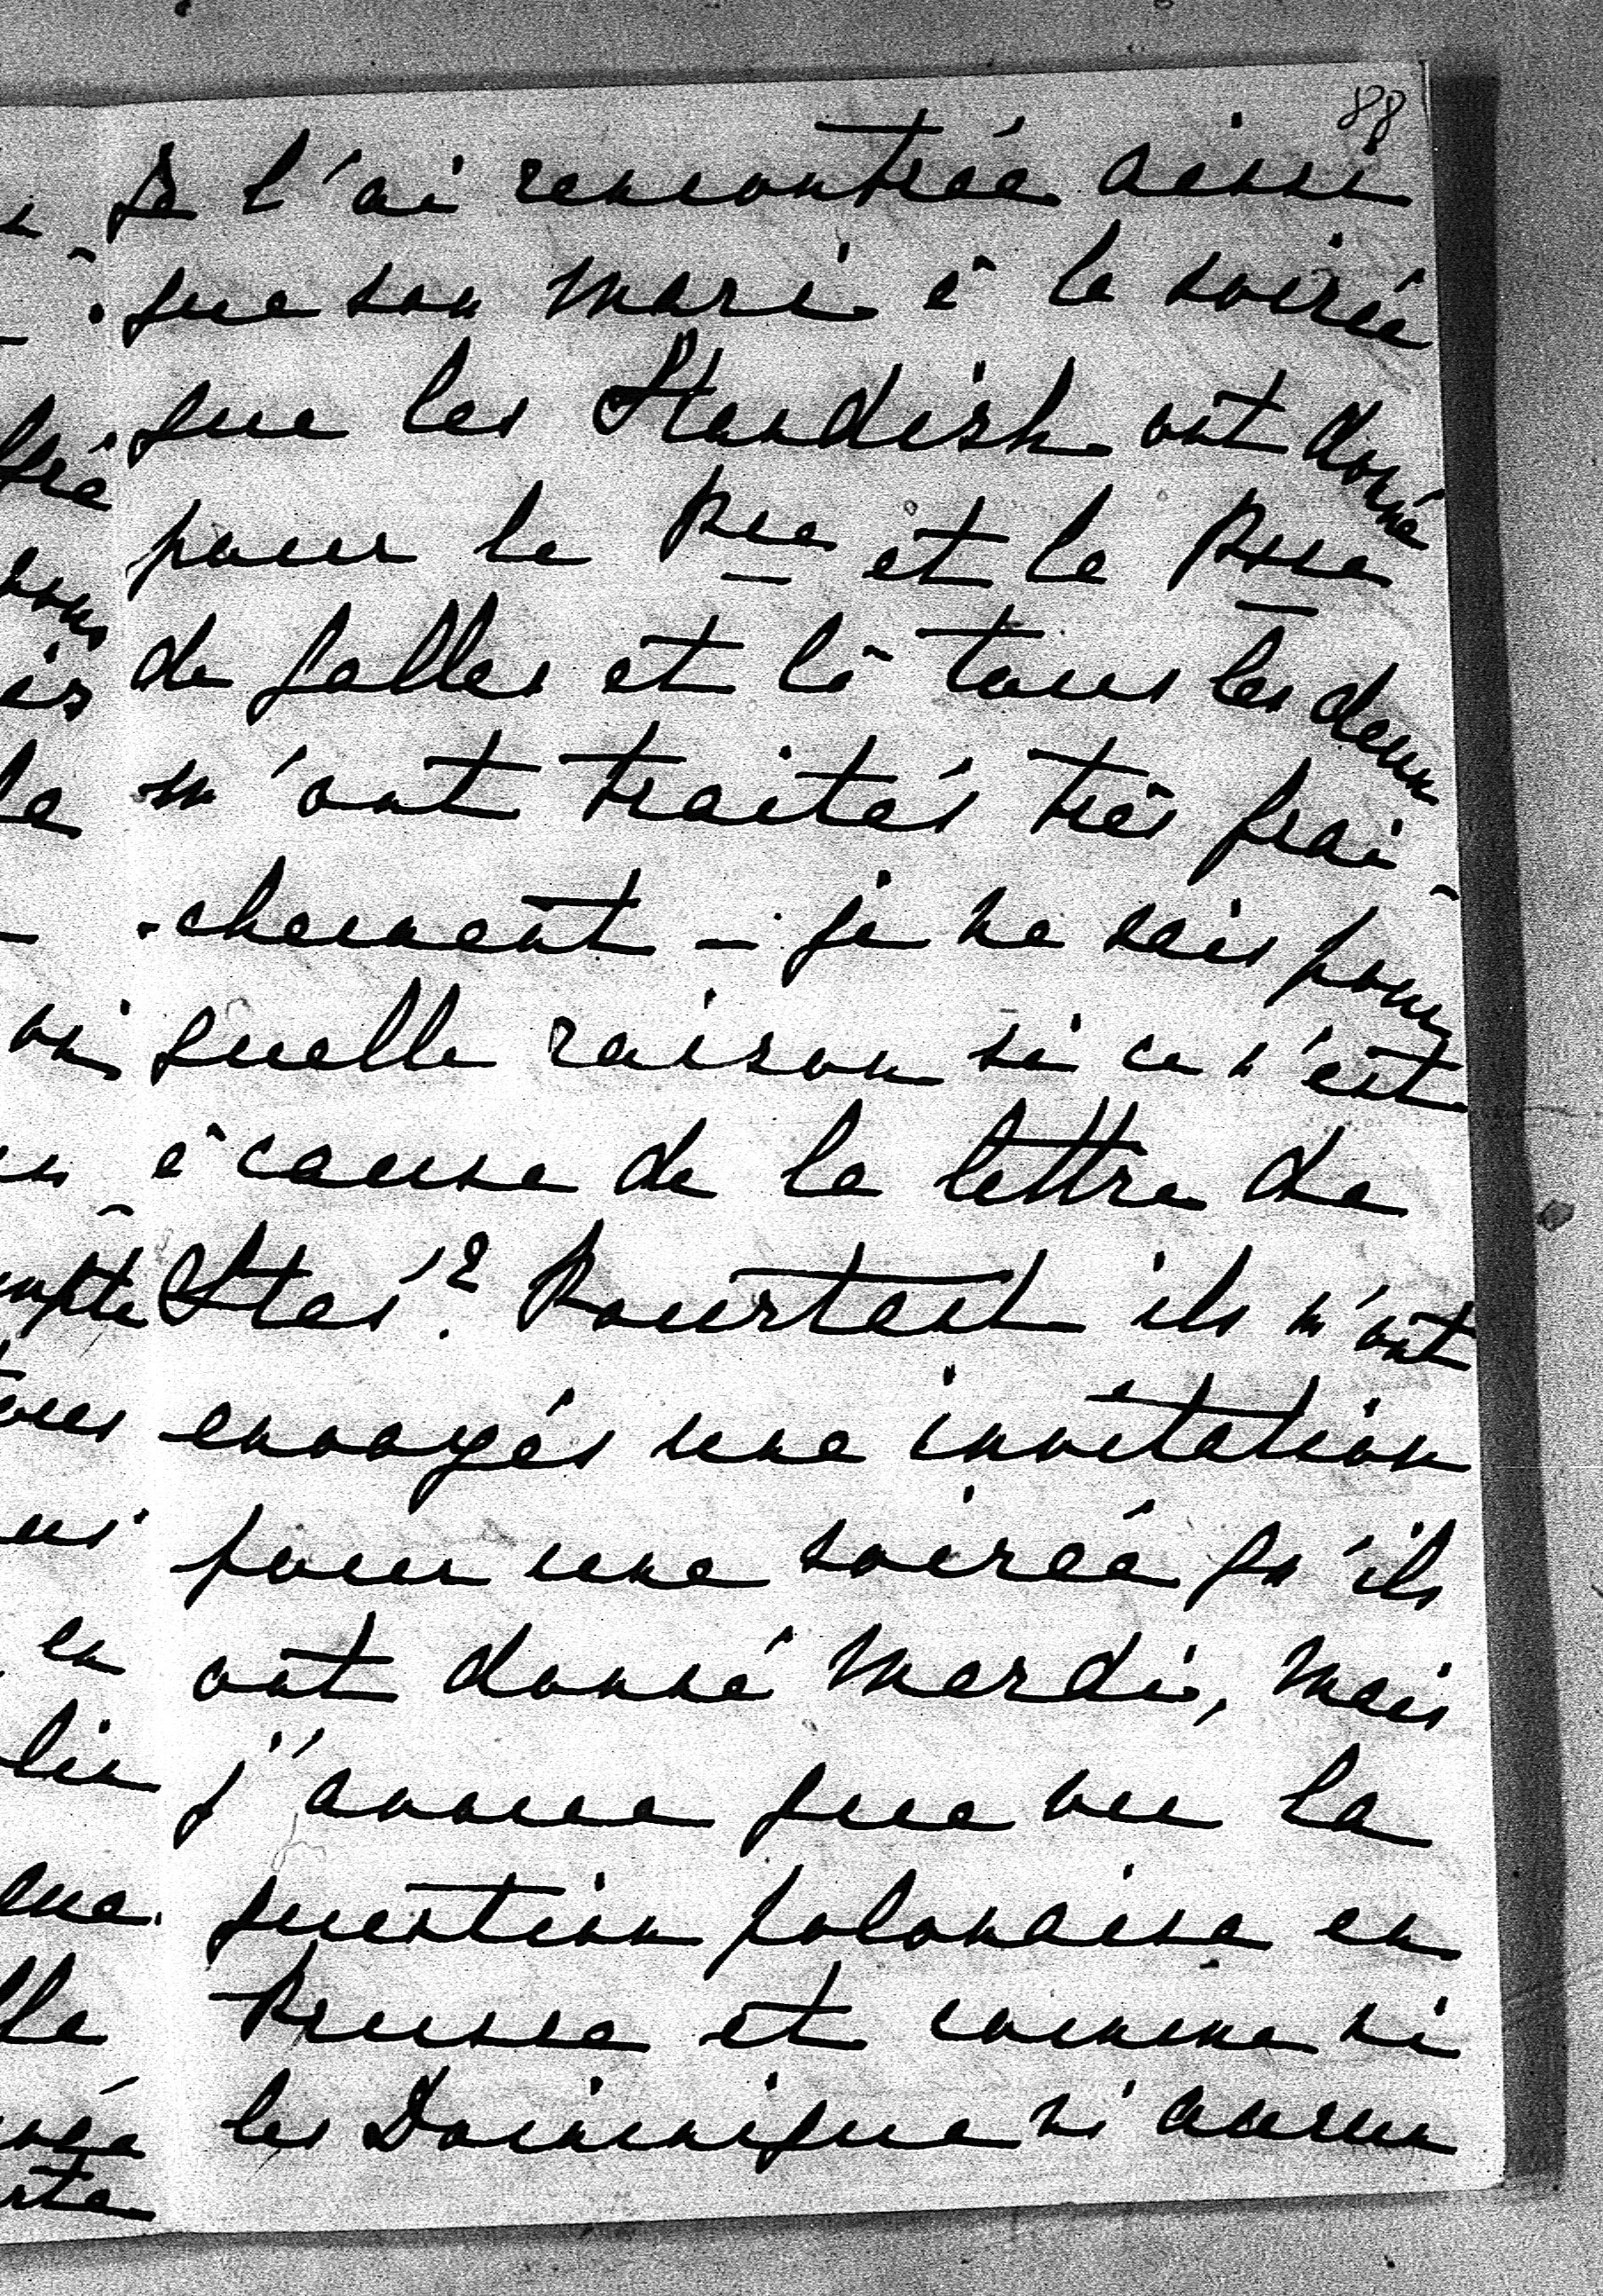 88
Je l'ai rencontrée ainsi
que son mari à la soirée
que les Standish ont donné
pour le Pce et la Psse
de Galles et là tous les deux
m'ont traités très frai-
-chement – je ne sais pour
quelle raison si ce n'est
à cause de la lettre de
Stas'? Pourtant ils m'ont
envoyés une invitation
pour une soirée qu'ils
ont donné mardi, mais
j'avoue que vu la
question polonaise en
Prusse et comme ni
les Dominique ni aucun